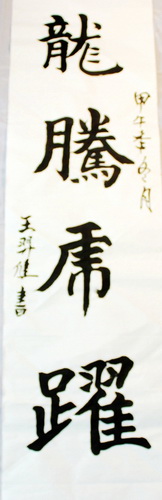 龍騰虎躍
甲午年冬月
王羿健書